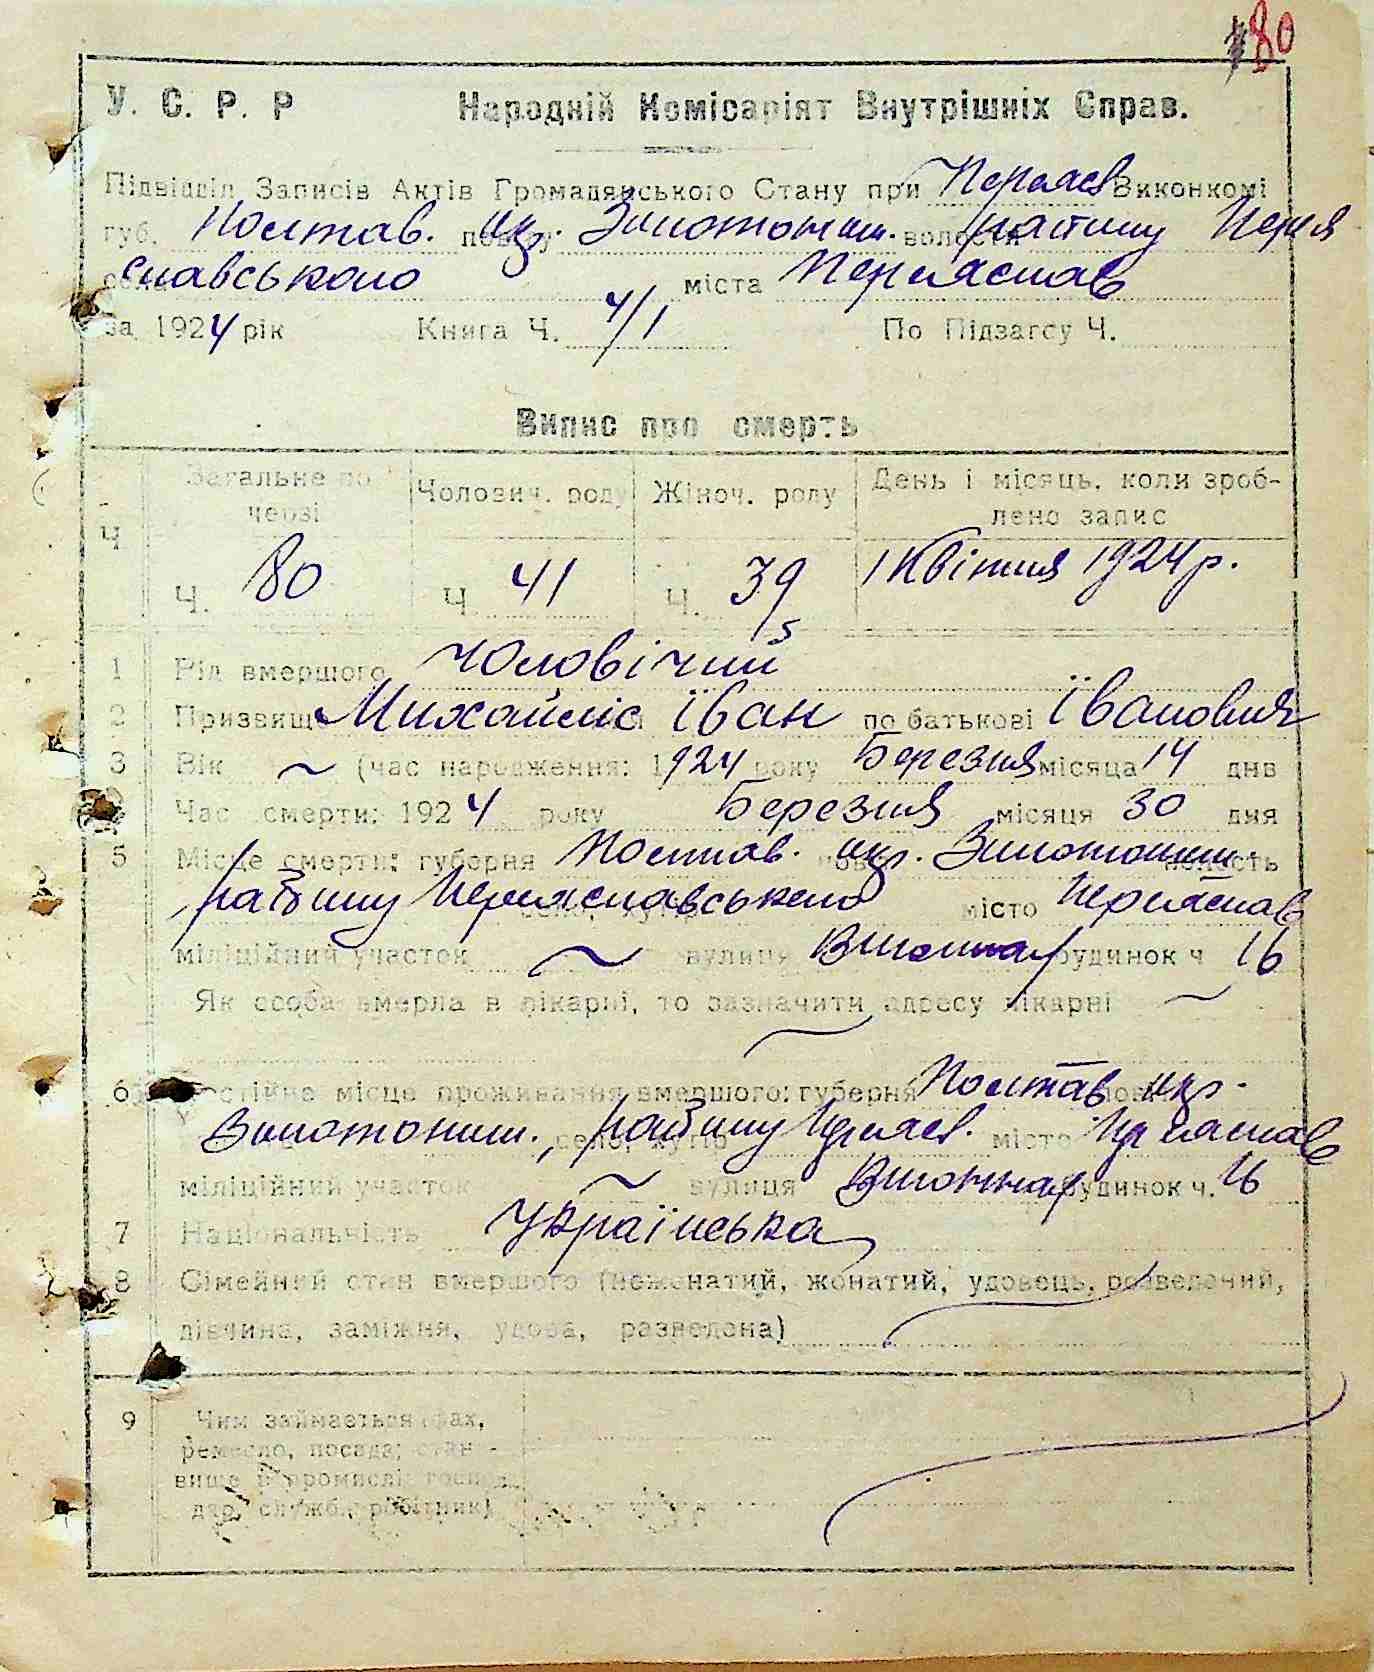 80
У. С. Р. Р Народній Комісаріят Внутрішніх Справ.
Підвідділ Записів Актів Громадянського Стану при Переяс Виконкомі
губ. Полтав. повіту окр. Золотоніш. волости району Перея
славського міста Переяслав
за 1924 рік Книга Ч. 4/1 По Підзагсу Ч.
Випис про смерть
Ч Загальне по черзі Чоловіч. роду Жіноч. роду День і місяць, коли зроб-
лено запис
Ч. 80 Ч. 41 Ч. 39 1 Квітня 1924 р.
1 Рід вмершого чоловічий
2 Призвище Михайліс Іван по батькові Іванович
3 Вік ~ (час народження: 1924 року Березня місяца 14 днв
Час смерти: 1924 року Березня місяця 30 дня
5 Місце смерти: губерня Полтав. окр. Золотоніш. волость
району Переяславського село, хутір місто Переяслав
міліційний участок ~ вулиця будинок ч 16
Як особа вмерла в лікарні, то зазначити адресу лікарні ~
6 Постійне місце проживання вмершого: губерня Полтав окр.
Золотоніш., село, хутір району Переяс. місто Переяслав
міліційний участок ~ вулиця будинок ч. 16
7 Національність Українська
8 Сімейний стан вмершого (неженатий, жонатий, удовець, розведений,
дівчина, заміжня, удова, разведена)
9 Чим займається (фах,
ремесло, посада; стано-
вище в промислі: господ.
дар, служб., робітник)